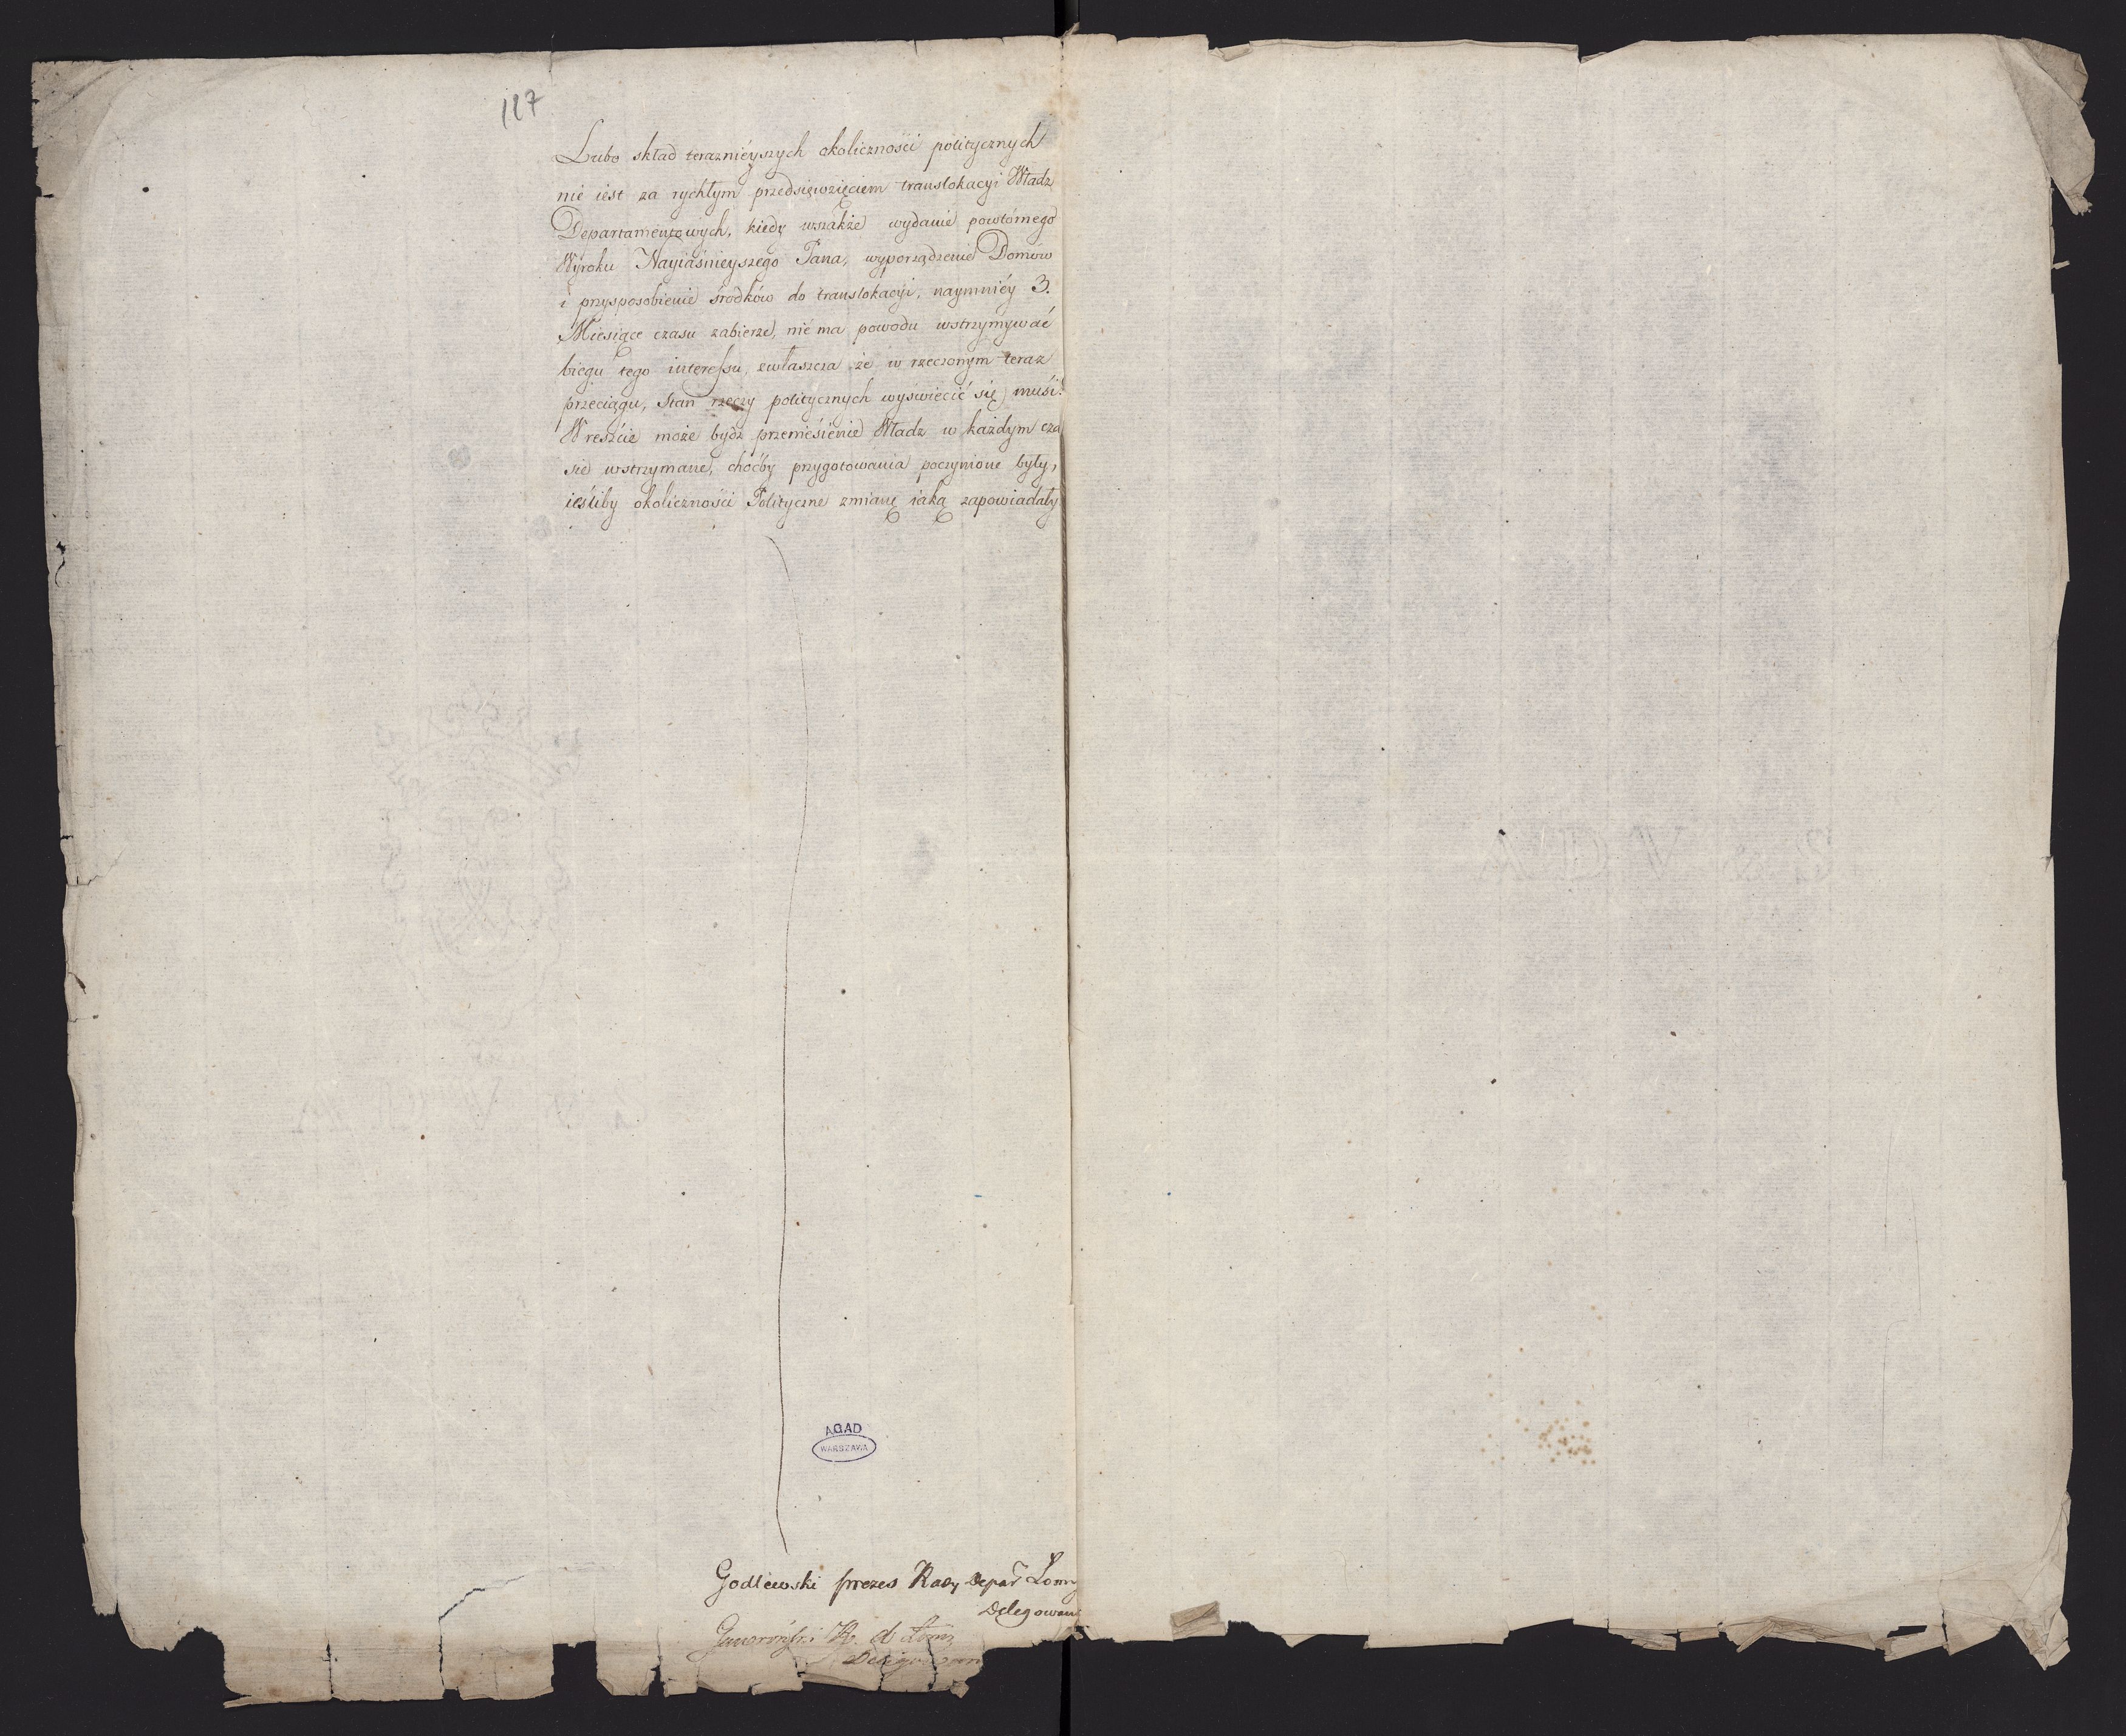 117
Lubo skład teraznieyszych okoliczności politycznych
nie iest za rychłym przedsięwzięciem translokacyi Władz
Departamentowych, kiedy wszakże wydanie powtórnego
Wyroku Nayiaśnieyszego Pana, wyporządzenie Domów
i przysposobienie środków do translokacyi, naymniéy 3.
Miesiące czasu zabierze, nie ma powodu wstrzymywać
biegu tego interessu, zwłaszcza że w rzeczonym teraz
przeciągu, stan rzeczy politycznych wyświecić się musi.
Wreście może bydź przeniesienie Władz w każdym cza
sie wstrzymane, choćby przygotowania poczynione były,
ieśliby okoliczności Polityczne zmianę iaką zapowiadały
AGAD
WARSZAWA
Godlewski prezes Rady Depar Łomż
Delegowany
R. d Łomż
Delegowan